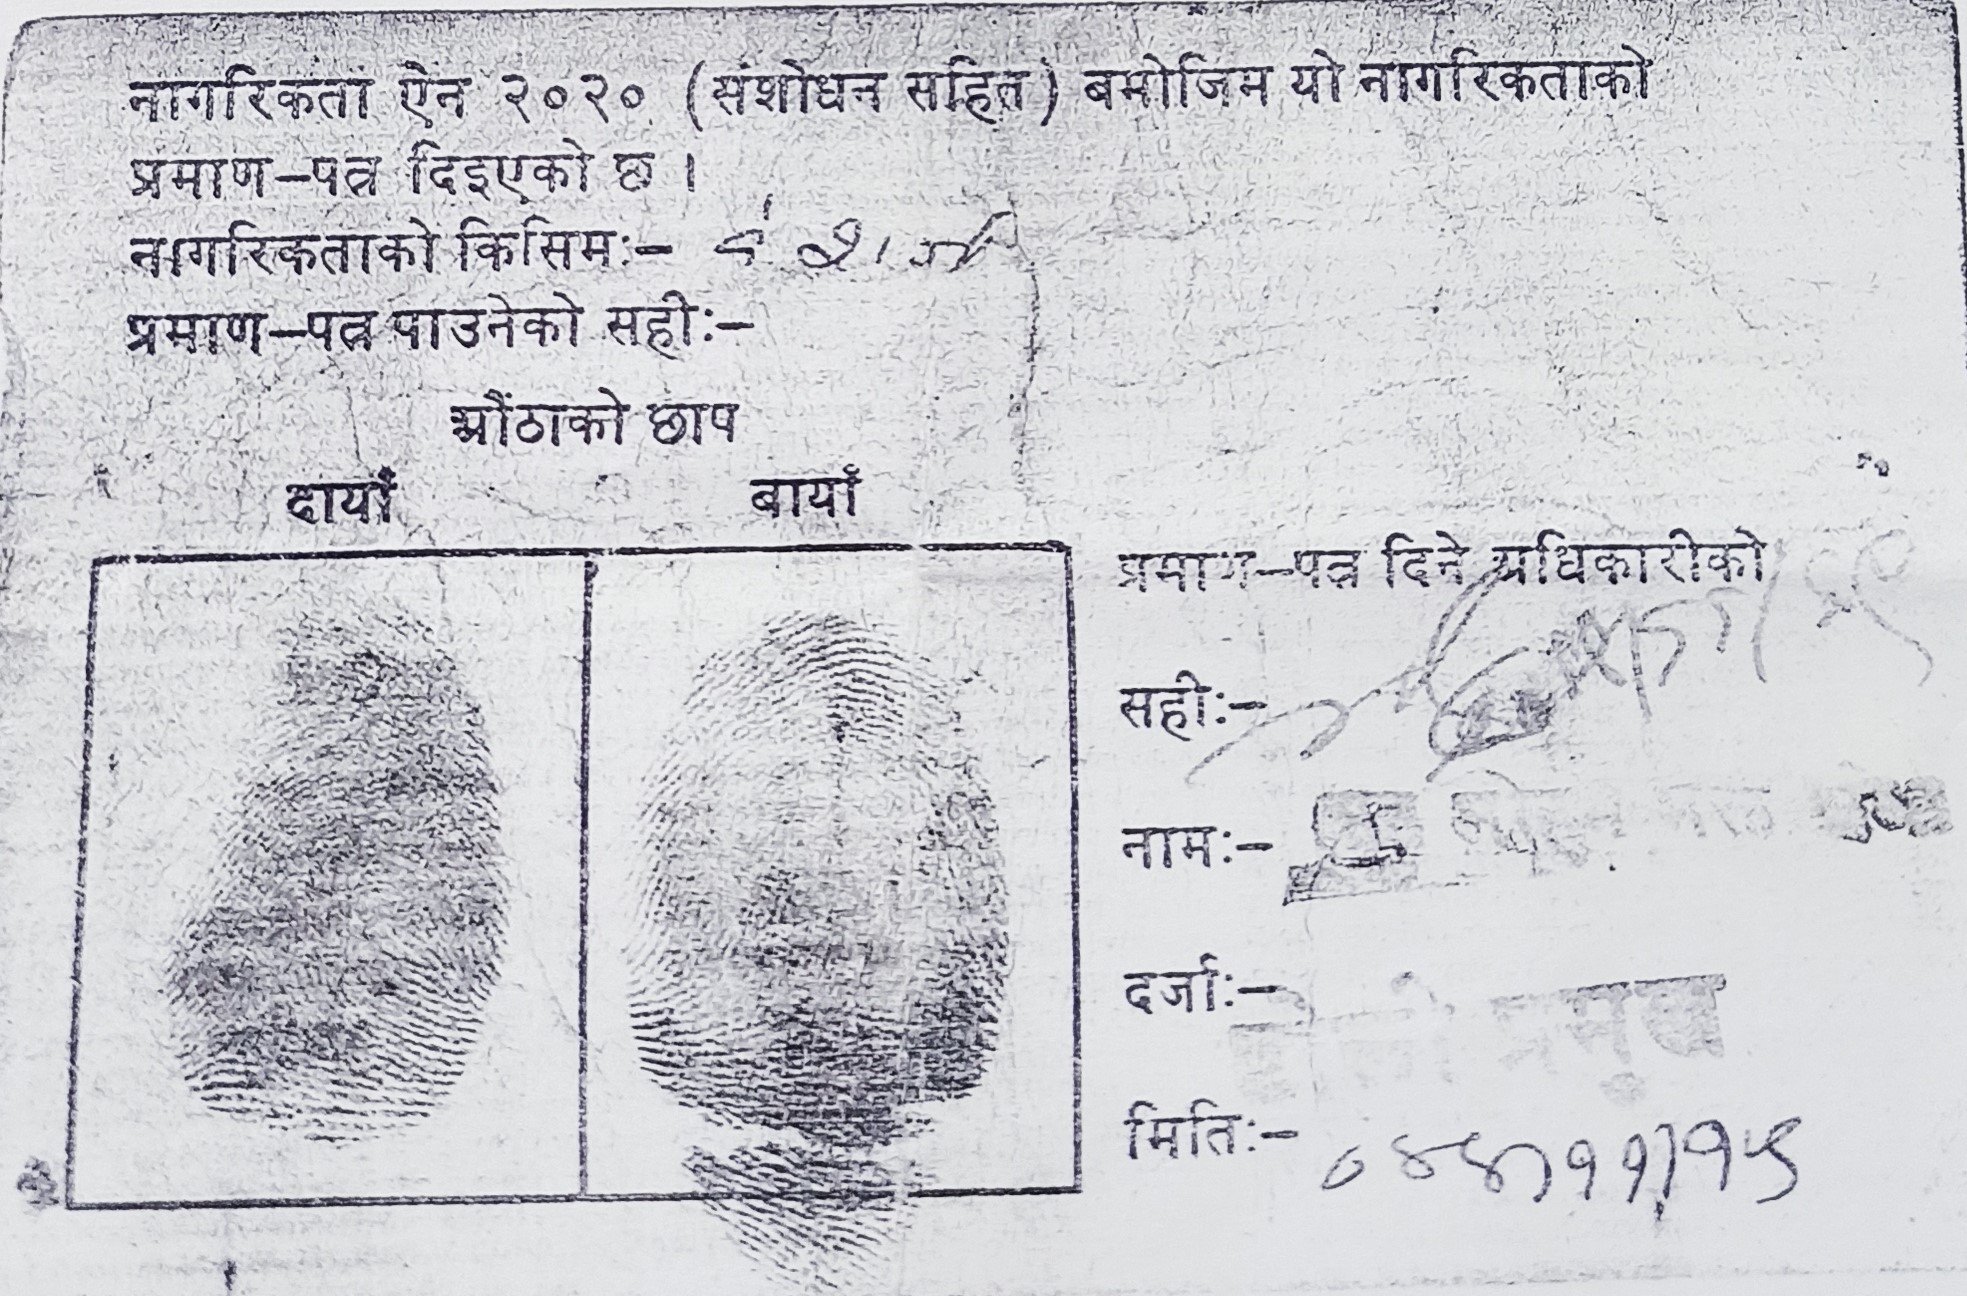 नागरिकता ऐन २०२० (संशोधन सहित) बमोजिम यो नागरिकताको
प्रमाण-पत्र दिइएको छ ।
नागरिकताको किसिम:- वंशज
प्रमाण-पत्र पाउनेको सही:-
औंठाको छाप
दायाँ बायाँ
प्रमाण-पत्र दिने अधिकारीको
सही:-
नाम:-
दर्जा:- टोली प्रमुख
मिति:- ०४४/११/१५